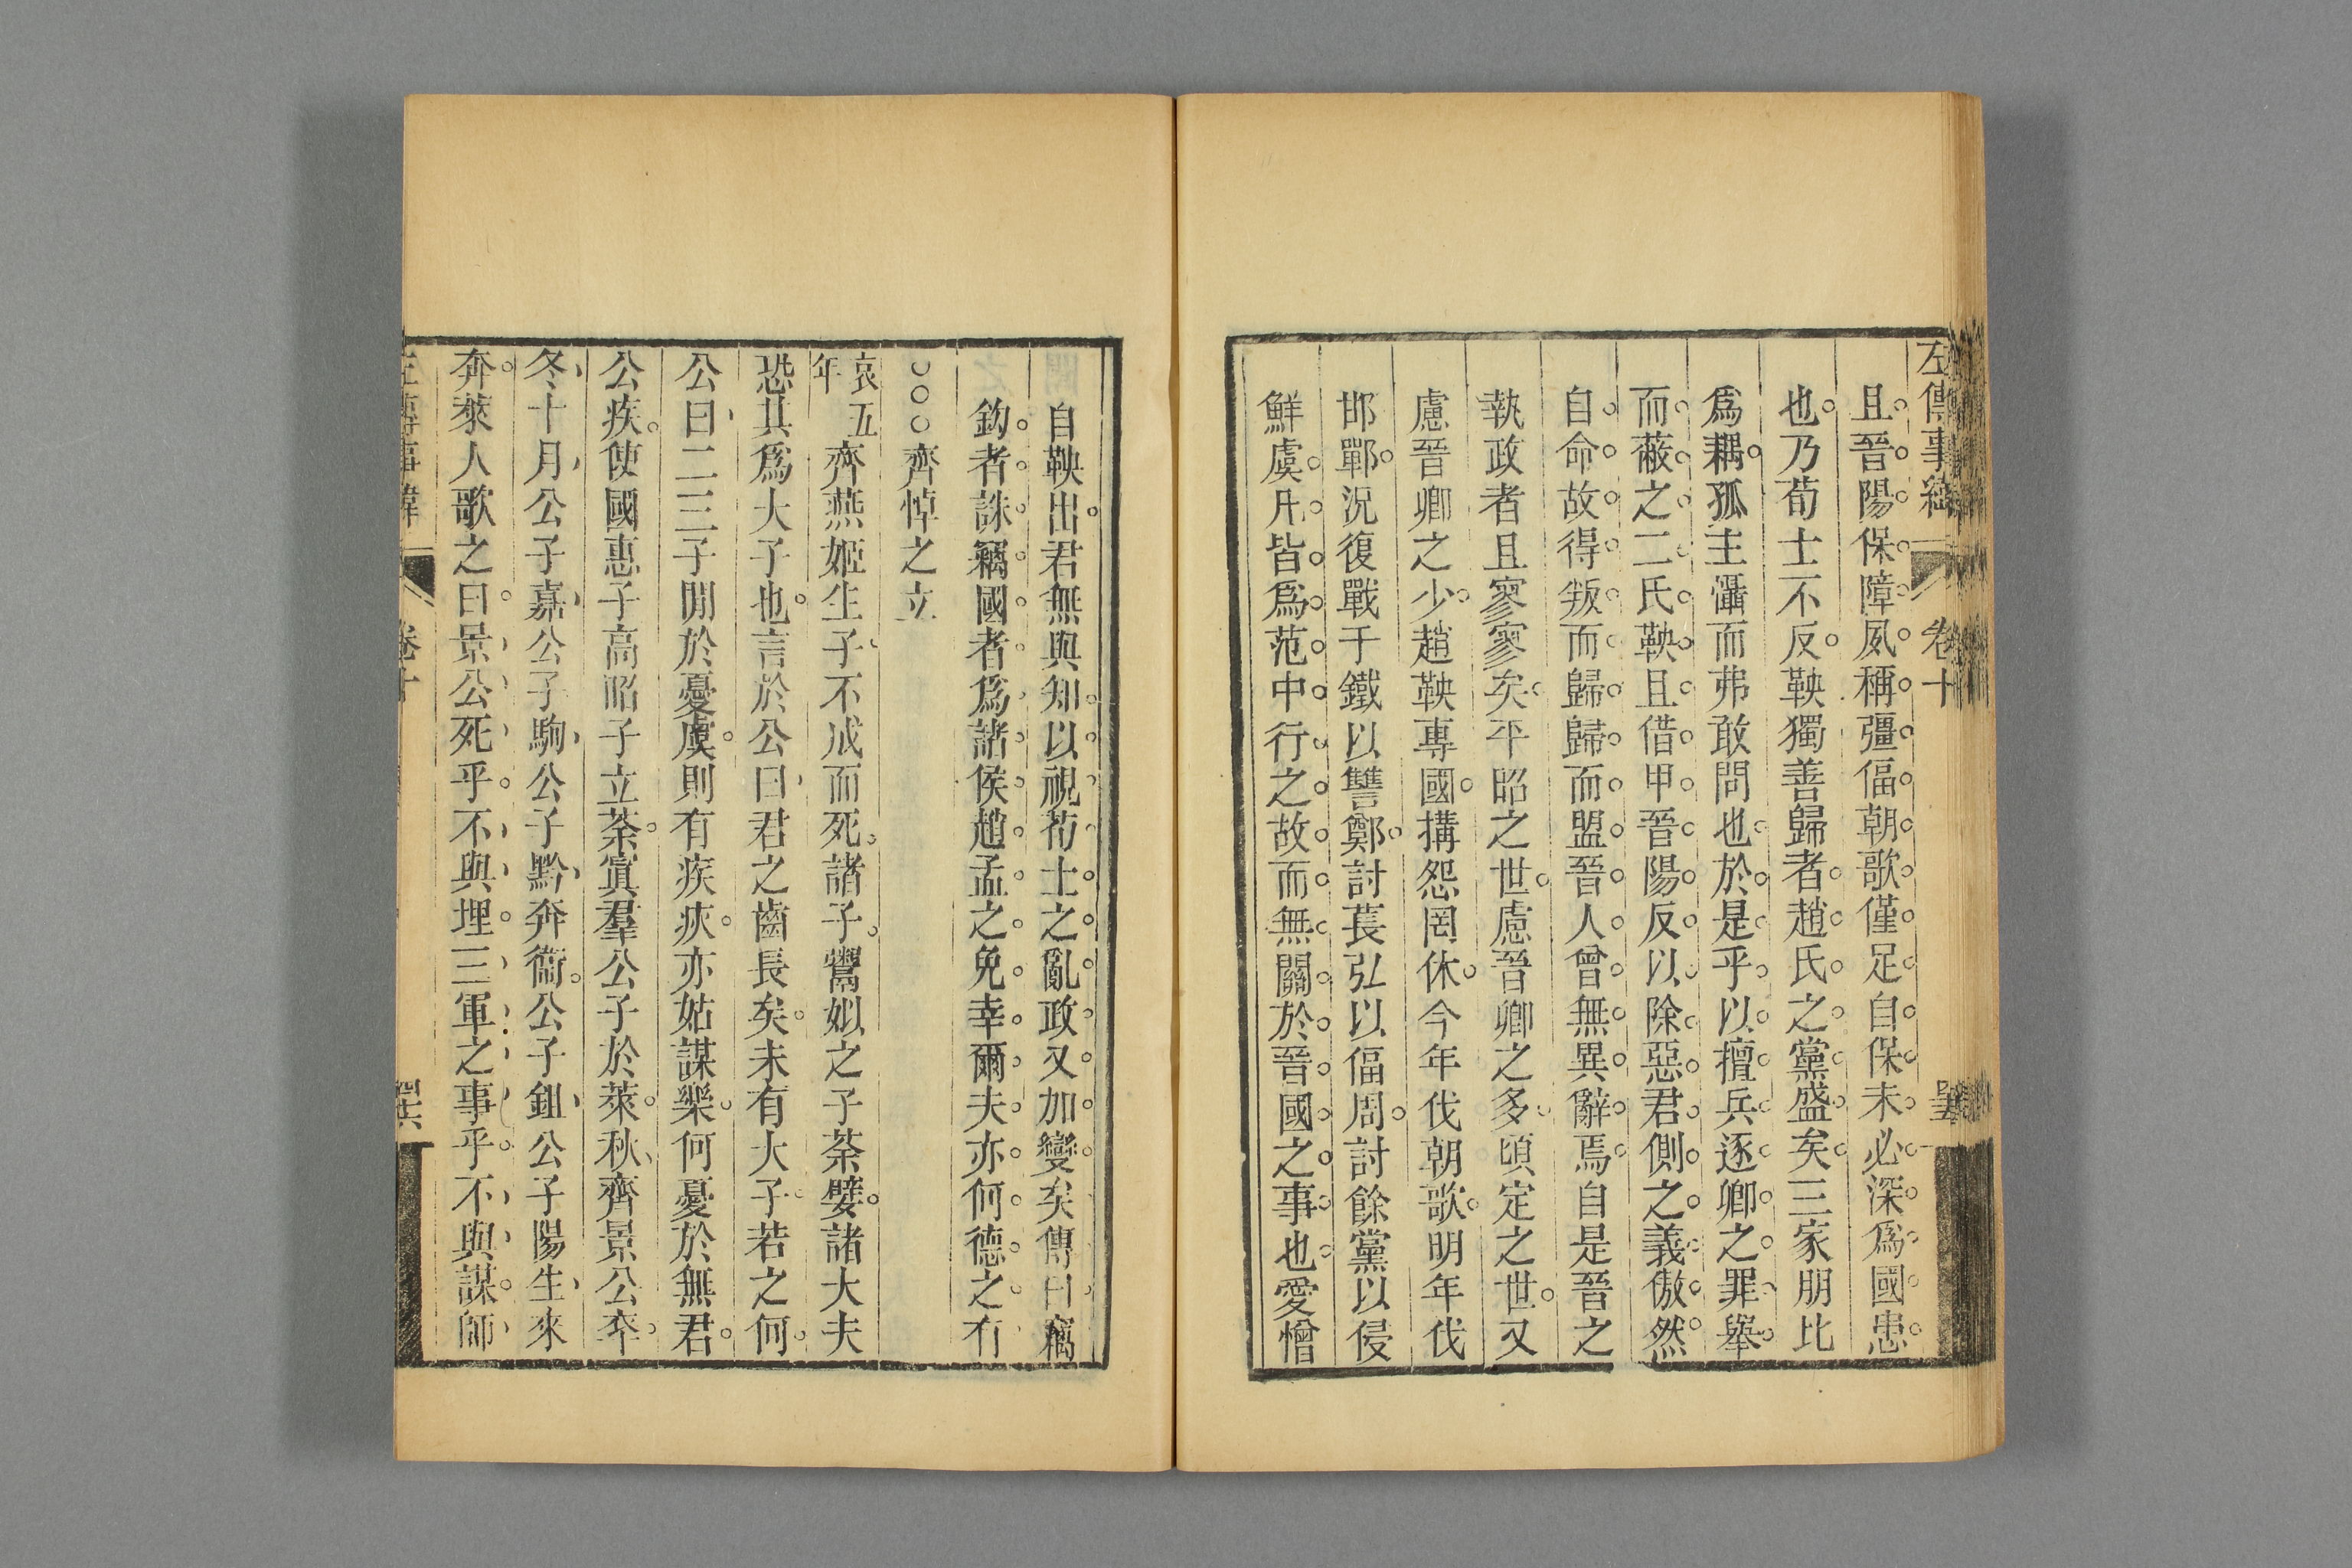 左傳事緯 卷十
且晉陽保障夙稱彊偪朝歌僅足自保未必深爲國患
也乃荀士不反鞅獨善歸者趙氏之黨盛矣三家朋比
爲耦孤主懾而弗敢問也於是乎以擅兵逐卿之罪舉
而蔽之二氏鞅且借甲晉陽反以除惡君側之義傲然
自命故得叛而歸歸而盟晉人曾無異辭焉自是晉之
執政者且寥寥矣平昭之世慮晉卿之多頃定之世又
慮晉卿之少趙鞅專國搆怨罔休今年伐朝歌明年伐
邯鄲況復戰于鐵以讐鄭討萇弘以偪周討餘黨以侵
鮮虞凡皆爲范中行之故而無關於晉國之事也愛憎
自鞅出君無與知以視荀士之亂政又加變矣傳曰竊
鈎者誅竊國者爲諸侯趙孟之免幸爾夫亦何德之有
○○○齊悼之立
哀五年 齊燕姬生子不成而死諸子鬻姒之子荼嬖諸大夫
恐其爲大子也言於公曰君之齒長矣未有大子若之何
公曰二三子閒於憂虞則有疾疢亦姑謀樂何憂於無君
公疾使國惠子高昭子立荼寘羣公子於萊秋齊景公卒
冬十月公子嘉公子駒公子黔奔衞公子鉏公子陽生來
奔萊人歌之曰景公死乎不與埋三軍之事乎不與謀師
左傳事緯 卷十